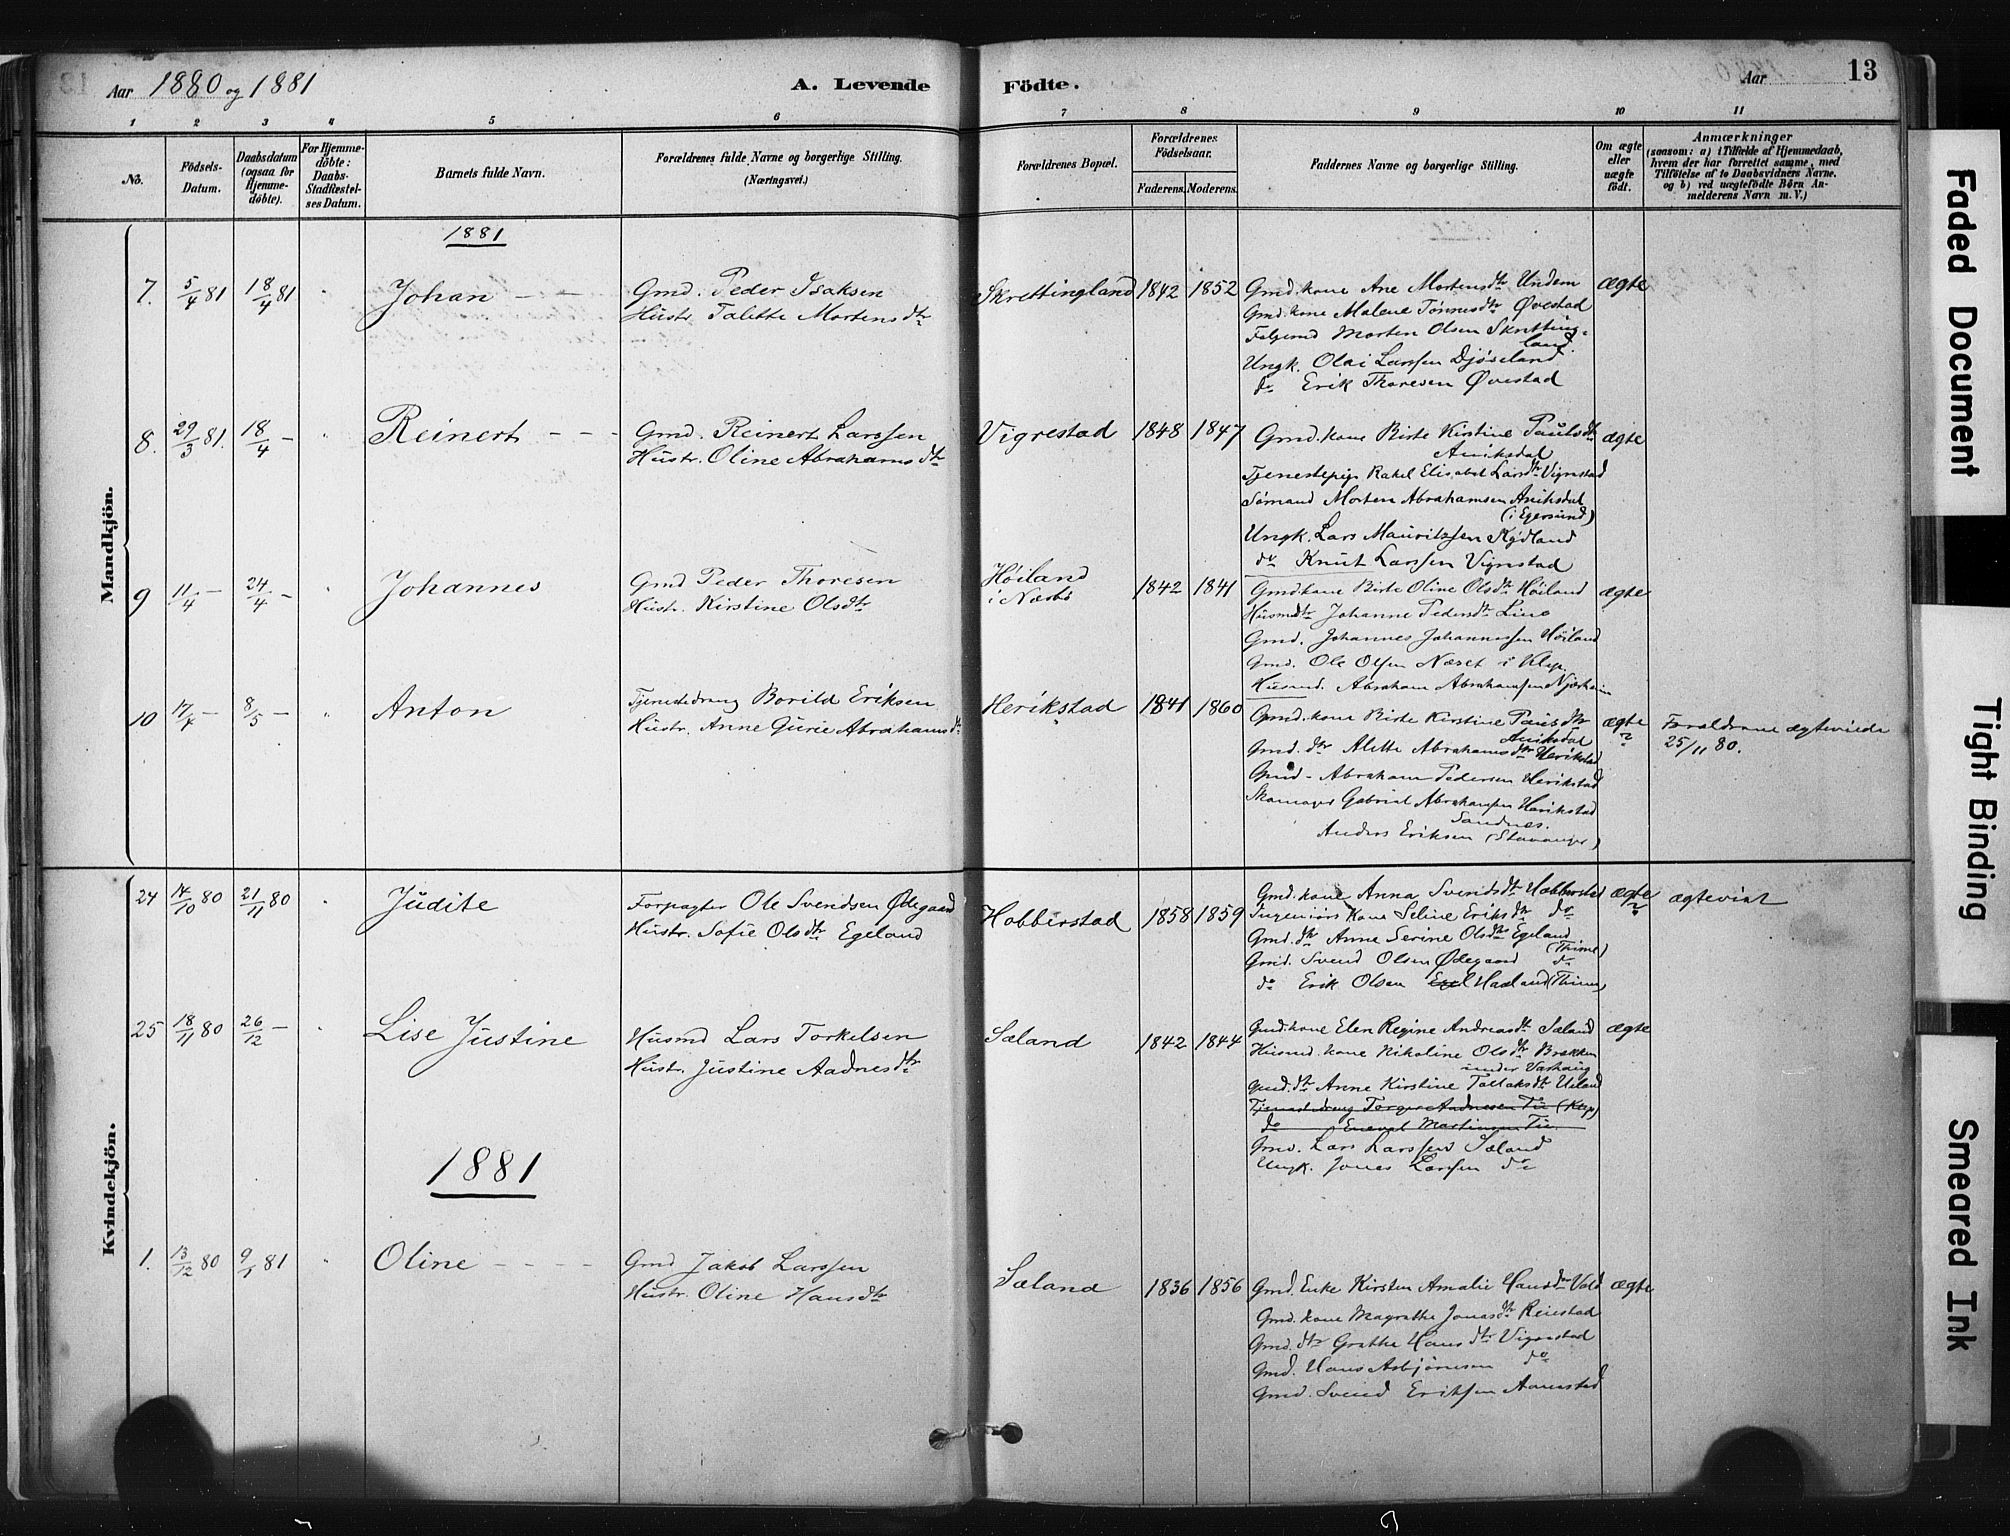 Aar 1880 og 1881
A. Levende Födte.
Aar 13
1 2 3 4 5 6 7 8 9 10 11
No.
Födsels-Datum.
Daabsdatum (ogsaa för Hjemme-döbte).
For Hjemme-döbte: Daabs-Stadfæstel-ses Datum.
Barnets fulde Navn.
Forældrenes fulde Navne og borgerlige Stilling. (Næringsvei.)
Forældrenes Bopæl.
Forældrenes Födselsaar.
Faderens. Moderens.
Faddernes Navne og borgerlige Stilling.
Om ægte eller uægte födt.
Anmærkninger
(saasom: a) i Tilfælde af Hjemmedaab,
hvem der har forrettet samme, med
Tilföielse af to Daabsvidners Navne.
og b) ved uægtefödte Börn An-
melderens Navn m. V.)
Mandkjön.
1881
7. 5/4 81 18/4 81 " Johan
Gmd. Peder Isaksen
Hustr. Talette Mortensdtr
Skrettingland 1842 1852
Gmd. kone Ane Mortensdtr Undem
Gmd. kone Malene Tønnesdtr Øvestad
Morten Olsen Skretting-
land.
Ungk. Olai Larssen Djøseland
do Erik Thoresen Øvestad
ægte
8. 29/3 81. 18/4 - " Reinert
Gmd. Reinert Larssen
Hustr. Oline Abrahamsdtr
Vigrestad 1848 1847
Gmd. kone Birte Kirstine Paulsdtr
Aniksdal
Tjenestepige Rakel Elisabet Larsdtr Vigrestad
Sømand Morten Abrahamsen Aniksdal
(i Egersund)
Ungk. Lars Mauritzsen Kydland
do Knut Larssen Vigrestad
ægte
9 11/4 - 24/4 - " Johannes
Gmd Peder Thoresen
Hustr. Kirstine Olsdtr
Høiland
i Nærbø
1842 1841
Gmd kone Birte Oline Olsdtr Høiland
Husmdtr Johanne Pedersdtr Line
Gmd. Johannes Johannessen Høiland
Gmd. Ole Olsen Næset i Klep.
Husmd. Abraham Abrahamsen Njærheim
ægte
10 17/4 - 8/5 - " Anton
Tjenestedreng Borild Eriksen
Hustr. Anne Gurie Abrahamsdtr
Herikstad 1841 1860
Gmd. kone Birte Kirstine Paulsdtr
Aniksdal
Gmd. dtr Alette Abrahamsdtr Herikstad
Gmd - Abraham Pedersen Herikstad
Skomager Gabriel Abrahamsen Herikstad
Sandnes.
Anders Eriksen (Stavanger)
ægte
?
Forældrene ægteviede
25/11 80.
Kvindekjön.
24 14/10 80 21/11 80 " Judite
Forpagter Ole Svendsen Ødegaard
Hustr. Sofie Olsdtr Egeland
Hobberstad 1858 1859
Gmd. kone Anna Svendsdtr Hobberstad
Ingeniørs kone Seline Eriksdtr do
Gmd. dtr Anne Serine Olsdtr Egeland
(Thime)
Gmd. Svend Olsen Ødegaard do
do Erik Olsen Haaland (Thime)
ægte
?
ægteviet
25 18/11 80 26/12 - " Lise Justine
Husmd Lars Torkelsen
Hustr. Justine Aadnesdtr
Sæland 1842 1844
Gmd. kone Elen Regine Andreasdtr Sæland
Husmd. kone Nikoline Olsdtr Brækken
under Varhaug
Gmd. dtr Anne Kirstine Tollaksdtr Ueland
Tjenestedreng Torger Aadnesen Tu (Klep)
do Enevald Martinsen Tu.
Gmd. Lars Larssen Sæland
Ungk. Jonas Larssen do
ægte
1881
1. 13/12 80 9/1 81 " Oline
Gmd Jakob Larssen
Hustr. Oline Hansdtr
Sæland 1836 1856
Gmd. Enke Kirsten Amalie Hansdtr Vold
Gmd. kone Magrethe Jonasdtr Reiestad
Gmd. dtr Grethe Hansdtr Vigrestad
Gmd. Hans Asbjørnsen do
Gmd. Svend Eriksen Aanestad
ægte
Faded Document
Tight Binding
Smeared Ink